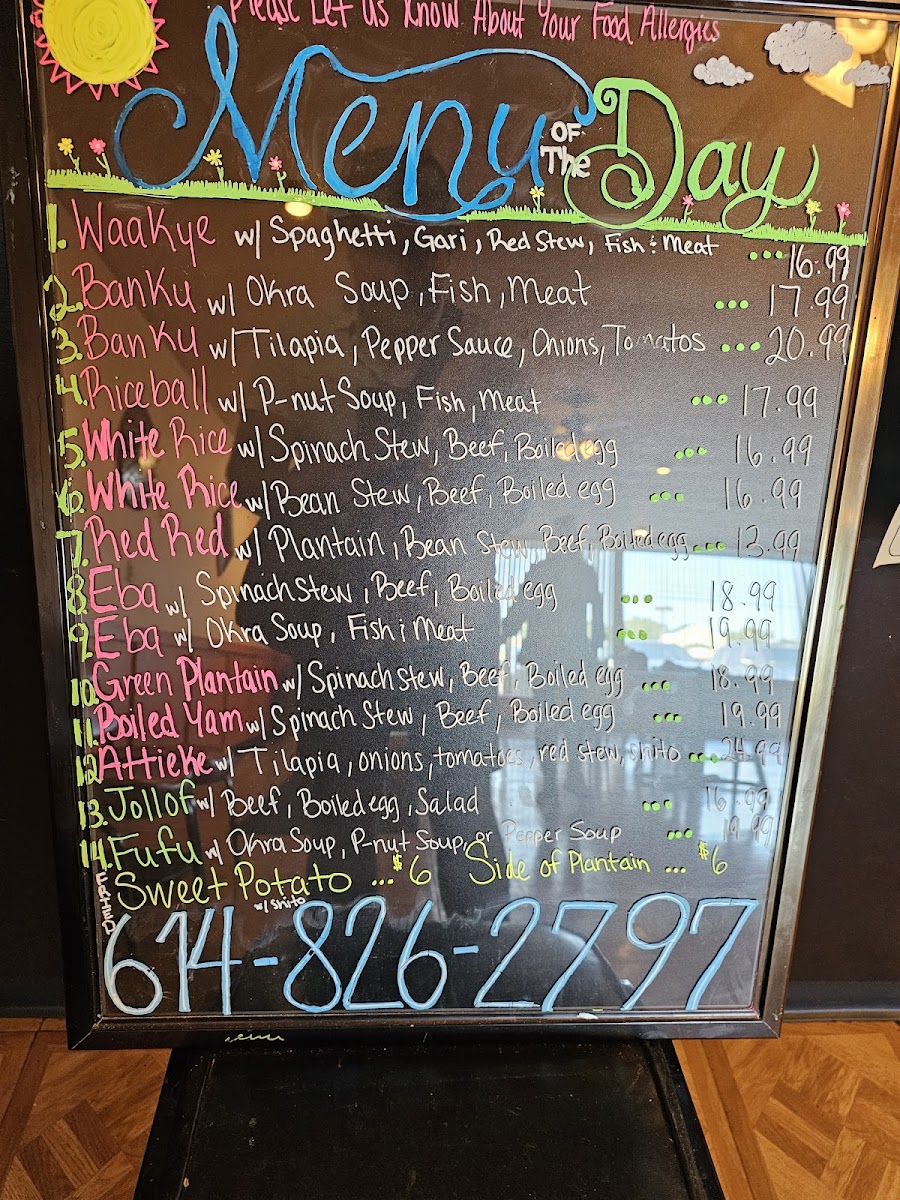 Please Let Us Know About Your Food Allergies
Menu OF The Day
1. Waakye w/ Spaghetti, Gari, Red Stew, Fish & Meat ... 16.99
2. Banku w/ Okra Soup, Fish, Meat ... 17.99
3. Banku w/ Tilapia, Pepper Sauce, Onions, Tomatos ... 20.99
4. Riceball w/ P-nut Soup, Fish, Meat ... 17.99
5. White Rice w/ Spinach Stew, Beef, Boiled egg ... 16.99
6. White Rice w/ Bean Stew, Beef, Boiled egg ... 16.99
7. Red Red w/ Plantain, Bean Stew, Beef, Boiled egg ... 13.99
8. Eba w/ Spinach Stew, Beef, Boiled egg ... 18.99
9. Eba w/ Okra Soup, Fish & Meat ... 19.99
10. Green Plantain w/ Spinach stew, Beef, Boiled egg ... 18.99
11. Boiled Yam w/ Spinach Stew, Beef, Boiled egg ... 19.99
12. Attieke w/ Tilapia, onions, tomatoes, red stew, shito ... 24.99
13. Jollof w/ Beef, Boiled egg, Salad ... 16.99
14. Fufu w/ Okra Soup, P-nut Soup, or Pepper Soup ... 19.99
Sweet Potato w/ Shito ... $6 Side of Plantain ... $6
614-826-2797